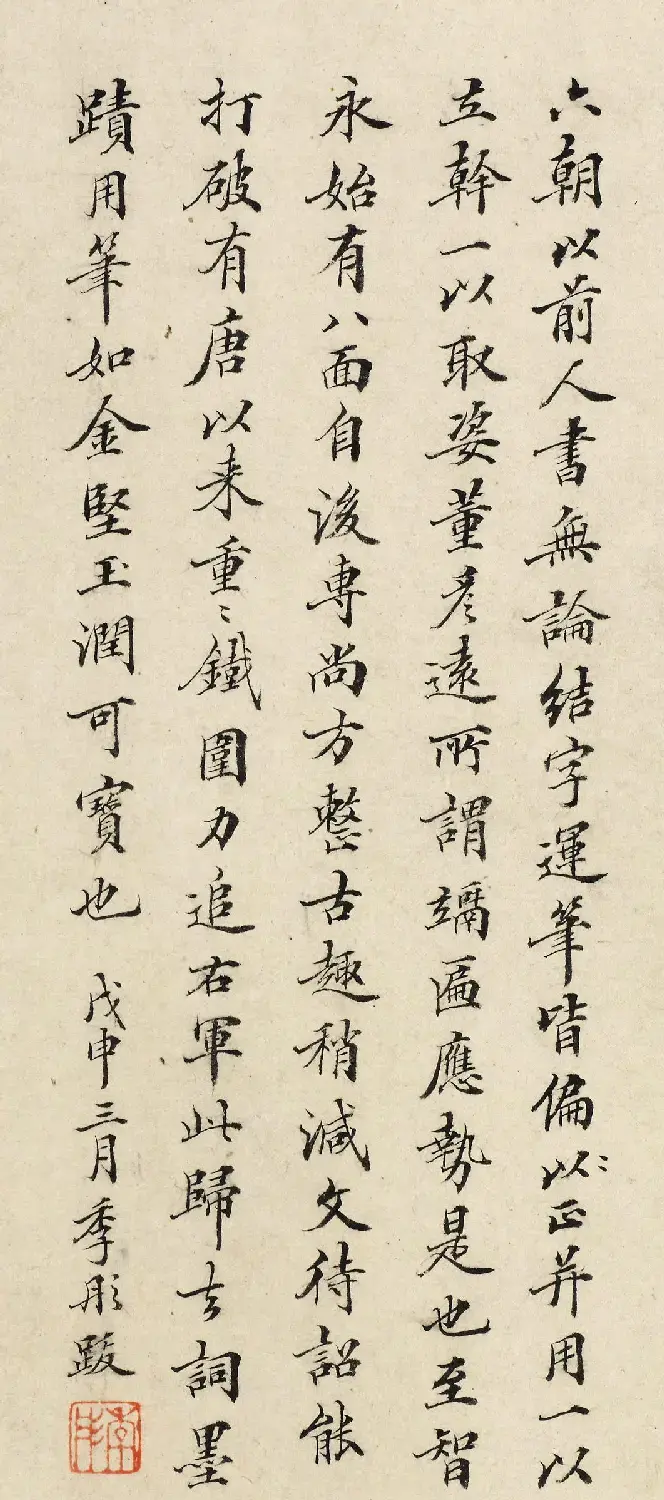 六朝以前人書無論結字運筆皆偏以〻正并用一以
立幹一以取姿董彦遠所謂竬匾應勢是也至智
永始有八面自後専尚方整古趣稍減文待詔能
打破有唐以来重〻鐵圍力追右軍此歸去詞墨
蹟用筆如金堅玉潤可寶也 戊申三月季彤跋
季彤